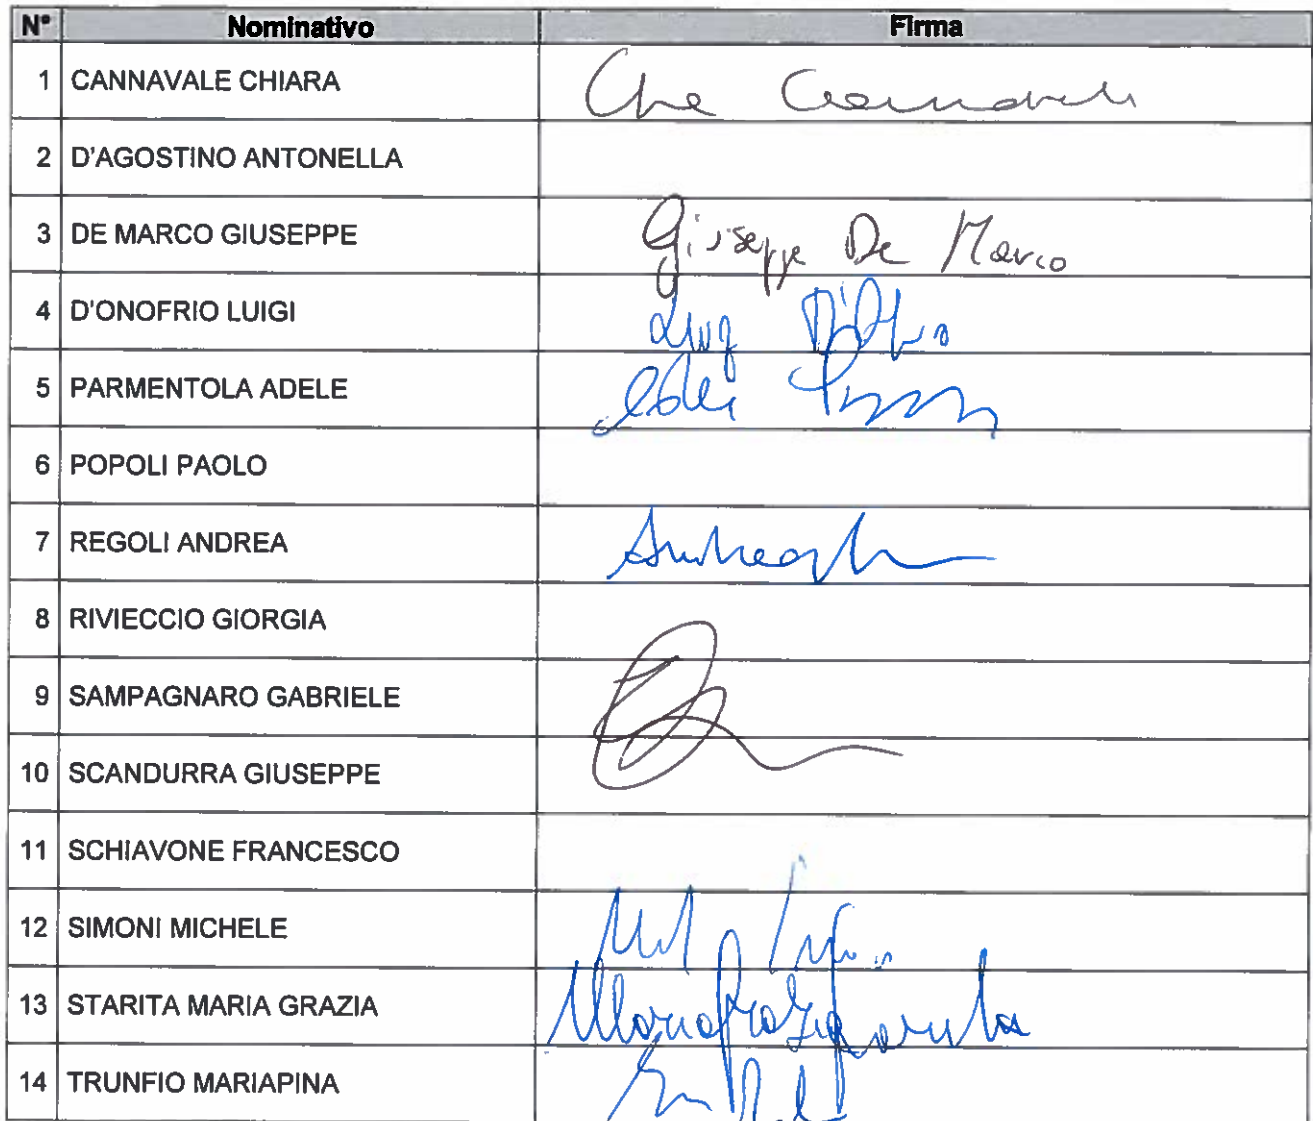 N° Nominativo Firma
1 CANNAVALE CHIARA
2 D'AGOSTINO ANTONELLA
3 DE MARCO GIUSEPPE Giuseppe De Marco
4 D'ONOFRIO LUIGI
5 PARMENTOLA ADELE
6 POPOLI PAOLO
7 REGOLI ANDREA
8 RIVIECCIO GIORGIA
9 SAMPAGNARO GABRIELE
10 SCANDURRA GIUSEPPE
11 SCHIAVONE FRANCESCO
12 SIMONI MICHELE
13 STARITA MARIA GRAZIA
14 TRUNFIO MARIAPINA